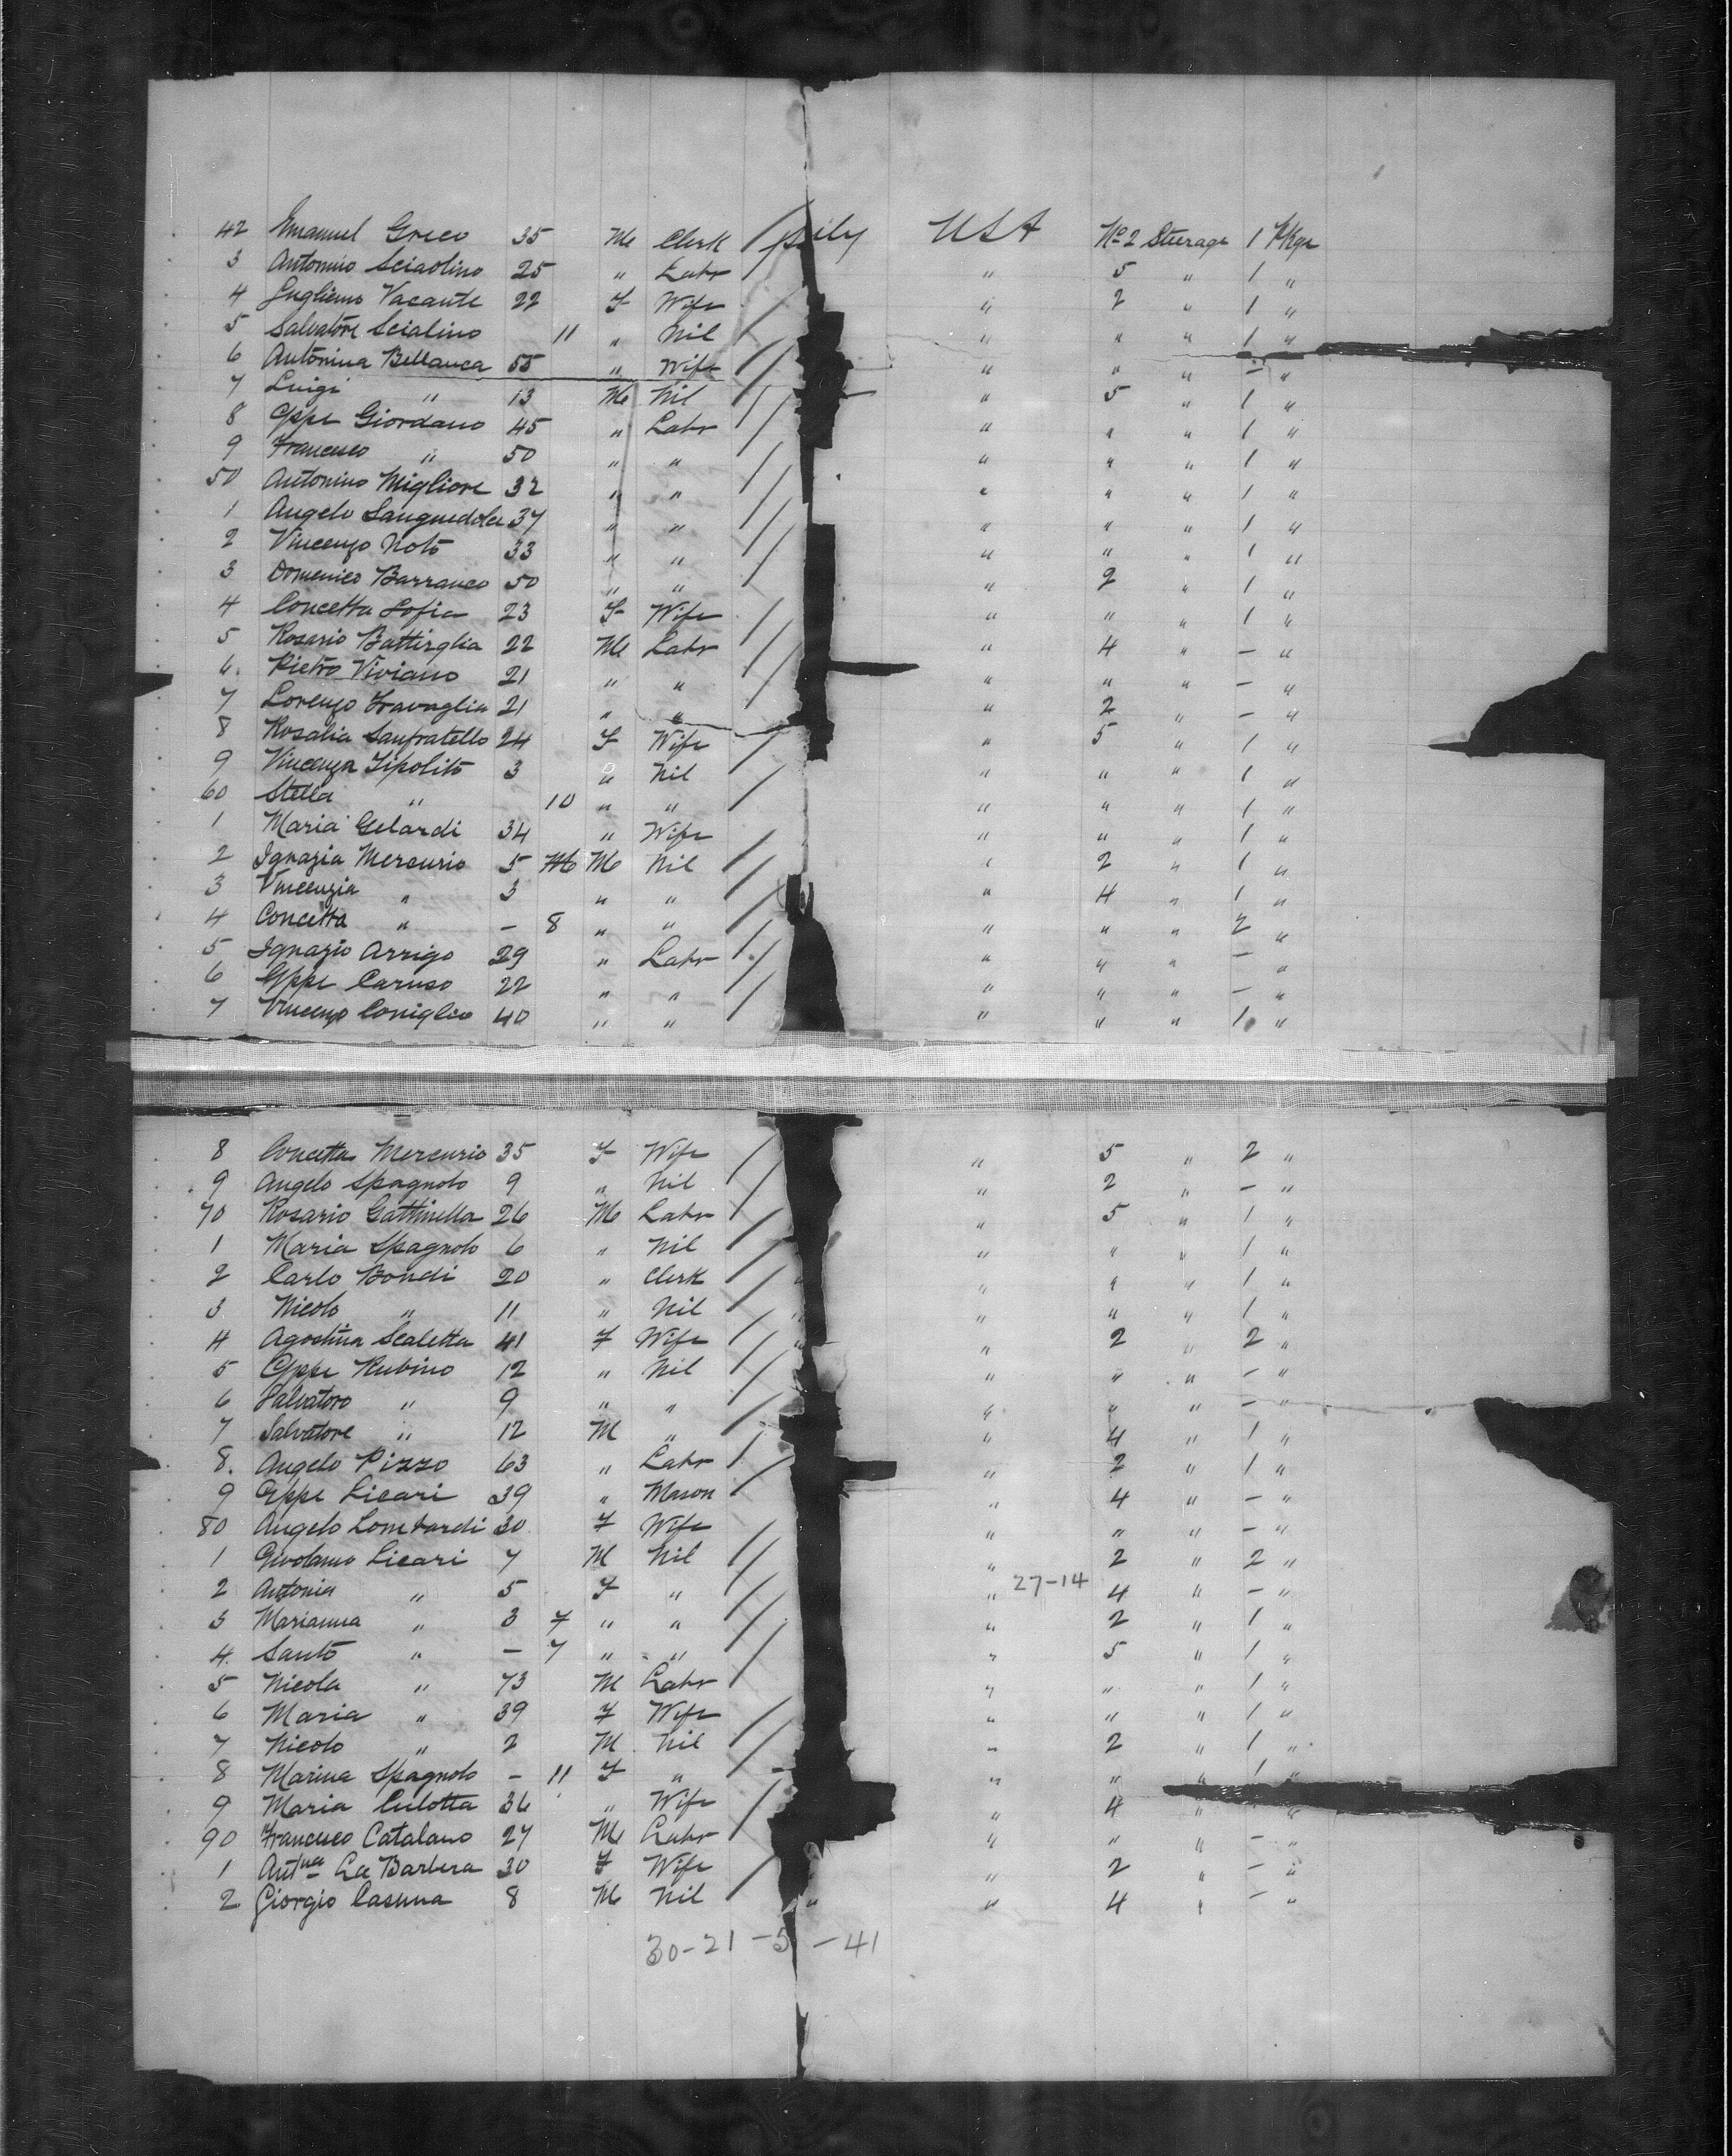 42 Emanuel Greco 35 M Clerk Sicily USA No 2 Steerage 1 Pkge
3 Antonino Sciaolino 25 " Labr " 5 " 1 "
4 Guglielmo Vacante 22 F Wife " 2 " 1 "
5 Salvatore Scialino 11 " Nil " " " 1 "
6 Antonina Bellanca 55 " Wife " " " - "
7 Luigi " 13 M Nil " 5 " 1 "
8 Gppe Giordano 45 " Labr " " " 1 "
9 Francesco " 50 " " " " " 1 "
50 Antonino Migliore 32 " " " " " 1 "
1 Angelo Sanguedolce 37 " " " " " 1 "
2 Vincenzo Noto 33 " " " " " 1 "
3 Domenico Barranco 50 " " " 2 " 1 "
4 Concetta Sofia 23 F Wife " " " 1 "
5 Rosario Battirglia 22 M Labr " 4 " - "
6. Pietro Viviano 21 " " " " " - "
7 Lorenzo Travaglia 21 " " " 2 " - "
8 Rosalia Sanfratello 24 F Wife " 5 " 1 "
9 Vincenza Tipolito 3 " Nil " " " 1 "
60 Stella " 10 " " " " " 1 "
1 Maria Gelardi 34 " Wife " " " 1 "
2 Ignazia Mercurio 5 M M Nil " 2 " 1 "
3 Vincenzia " 3 " " " 4 " 1 "
4 Concetta " - 8 " " " " " 2 "
5 Ignazio Arrigo 29 " Labr " " " - "
6 Gppe Caruso 22 " " " " " - "
7 Vincenzo Coniglio 40 " " " " " 1 "
8 Concetta Mercurio 35 F Wife " 5 " 2 "
9 Angelo Spagnolo 9 " Nil " 2 " - "
70 Rosario Gattinella 26 M Labr " 5 " 1 "
1 Maria Spagnolo 6 " Nil " " " 1 "
2 Carlo Bondi 20 " Clerk " " " 1 "
3 Nicolo " 11 " Nil " " " 1 "
4 Agostina Scaletta 41 F Wife " 2 " 2 "
5 Gppe Rubino 12 " Nil " " " - "
6 Salvatoro " 9 " " " " " - "
7 Salvatore " 12 M " " 4 " 1 "
8. Angelo Pizzo 63 " Labr " 2 " 1 "
9 Gppe Licari 39 " Mason " 4 " - "
80 Angelo Lombardi 30 F Wife " " " - "
1 Girolamo Licari 7 M Nil " 2 " 2 "
2 Antonia " 5 F " " 27-14 4 " - "
3 Marianna " 3 7 " " " 2 " 1 "
4. Santo " - 7 " " " 5 " 1 "
5 Nicola " 73 M Labr " " " 1 "
6 Maria " 39 F Wife " " " 1 "
7 Nicolo " 2 M Nil " 2 " 1 "
8 Marina Spagnolo - 11 F " " " " 1 "
9 Maria Culotta 36 " Wife " 4 " "
90 Francesco Catalano 27 M Labr " " " - "
1 Antna La Barbera 30 F Wife " 2 " - "
2 Giorgio Casuna 8 M Nil " " 4 " - "
30-21-5-41